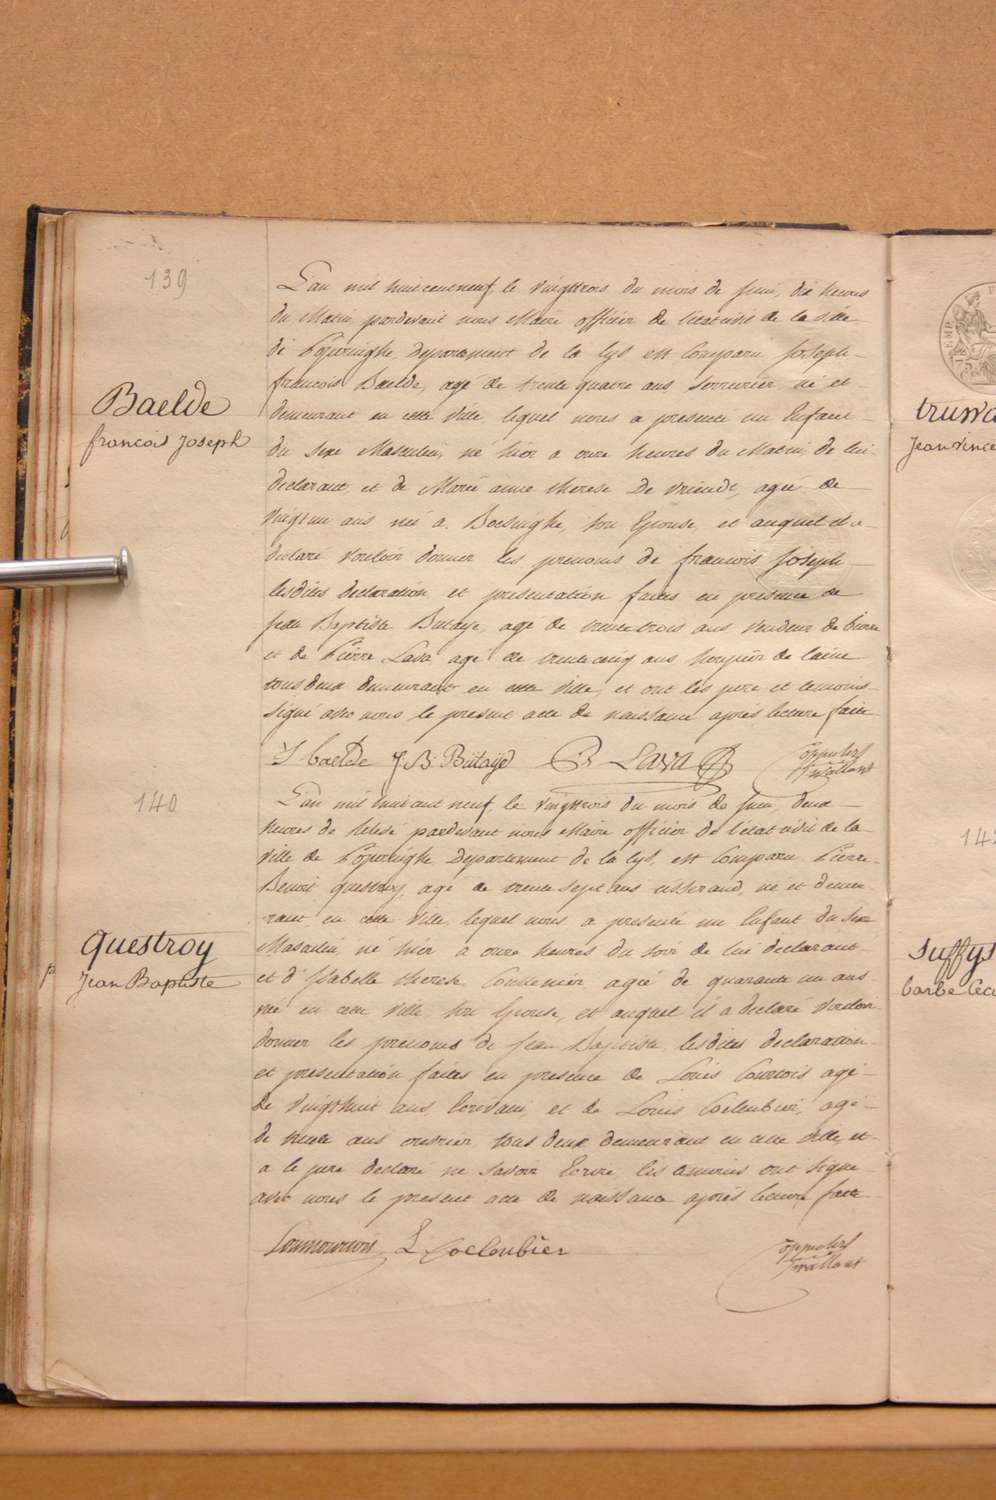 139
Baelde
francois Joseph
L'an mil huit cent neuf, le vingttrois du mois de Juin, dix heures
du Matin pardevant nous Maire officier de l'état civil de la ville
de Poperinghe, departement de la Lys est Comparu Joseph
francois Baelde, agé de trente quatre ans, Serrurier, né et
demeurant en cette Ville, lequel nous a presenté un Enfant
du Sexe Masculin, né hier a onze heures du Matin, de lui
declarant, et de Marie anne therese De Vriendt, agée de
vingt un ans née a Boesinghe, son Epouse, et auquel il a
declaré vouloir donner les prenoms de francois Joseph
lesdites declaration et presentation faites en presence de
Jean Baptiste Butaye, agé de trente trois ans Vendeur de bierre
et de Pierre Lava agé de trente cinq ans de laine
tous deux demeurant en cette Ville, et ont les pere et temoins
Signé avec nous le present acte de naissance après lecture faite
J baelde J. B. Butaÿe P Lava
140
Questroy
Jean Baptiste
L'an mil huit cent neuf, le vingttrois du mois de Juin, deux
heures de relevé pardevant nous Maire officier de l'état civil de la
ville de Poperinghe departement de la Lys, est Comparu Pierre
Benoit questroy, agé de trente sept ans tisserand, né et demeu
rant en cette Ville, lequel nous a presenté un Enfant du Sexe
Masculin, né hier a onze heures du soir de lui declarant
et d'Isabelle therese agée de quarante un ans
née en cette Ville, son Epouse, et auquel il a declaré vouloir
donner les prenoms de Jean Baptiste, lesdites declaration
et presentation faites en presence de Louis Courtois agé
de vingt huit ans et de Louis Coeloubier, agé
de trente ans ouvrier, tous deux demeurant en cette ville, et
a le pere declaré ne savoir Ecrire, les temoins ont Signé
avec nous le present acte de naissance après lecture faite
L Coeloubier
truwa
Jean Vince
suffys
barbe Cec